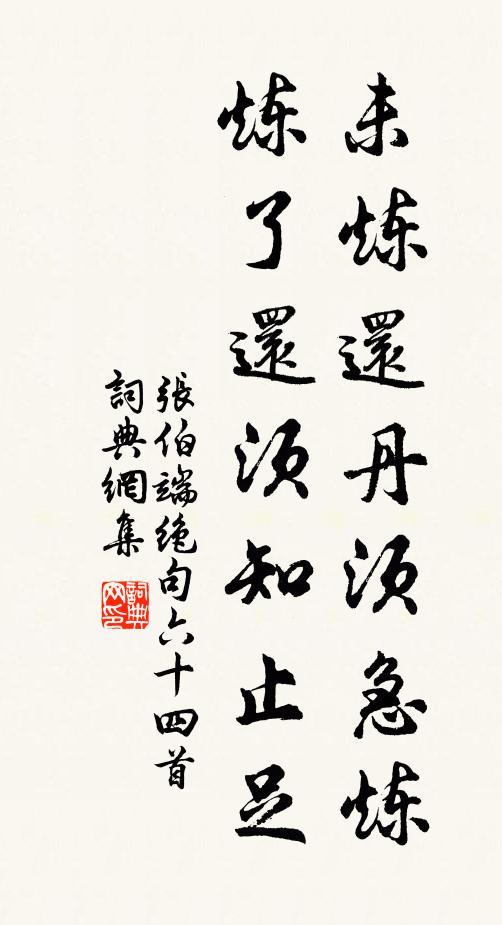 未炼還丹須急炼
炼了還須知止足
張伯端绝句六十四首
詞典網集
詞典网印